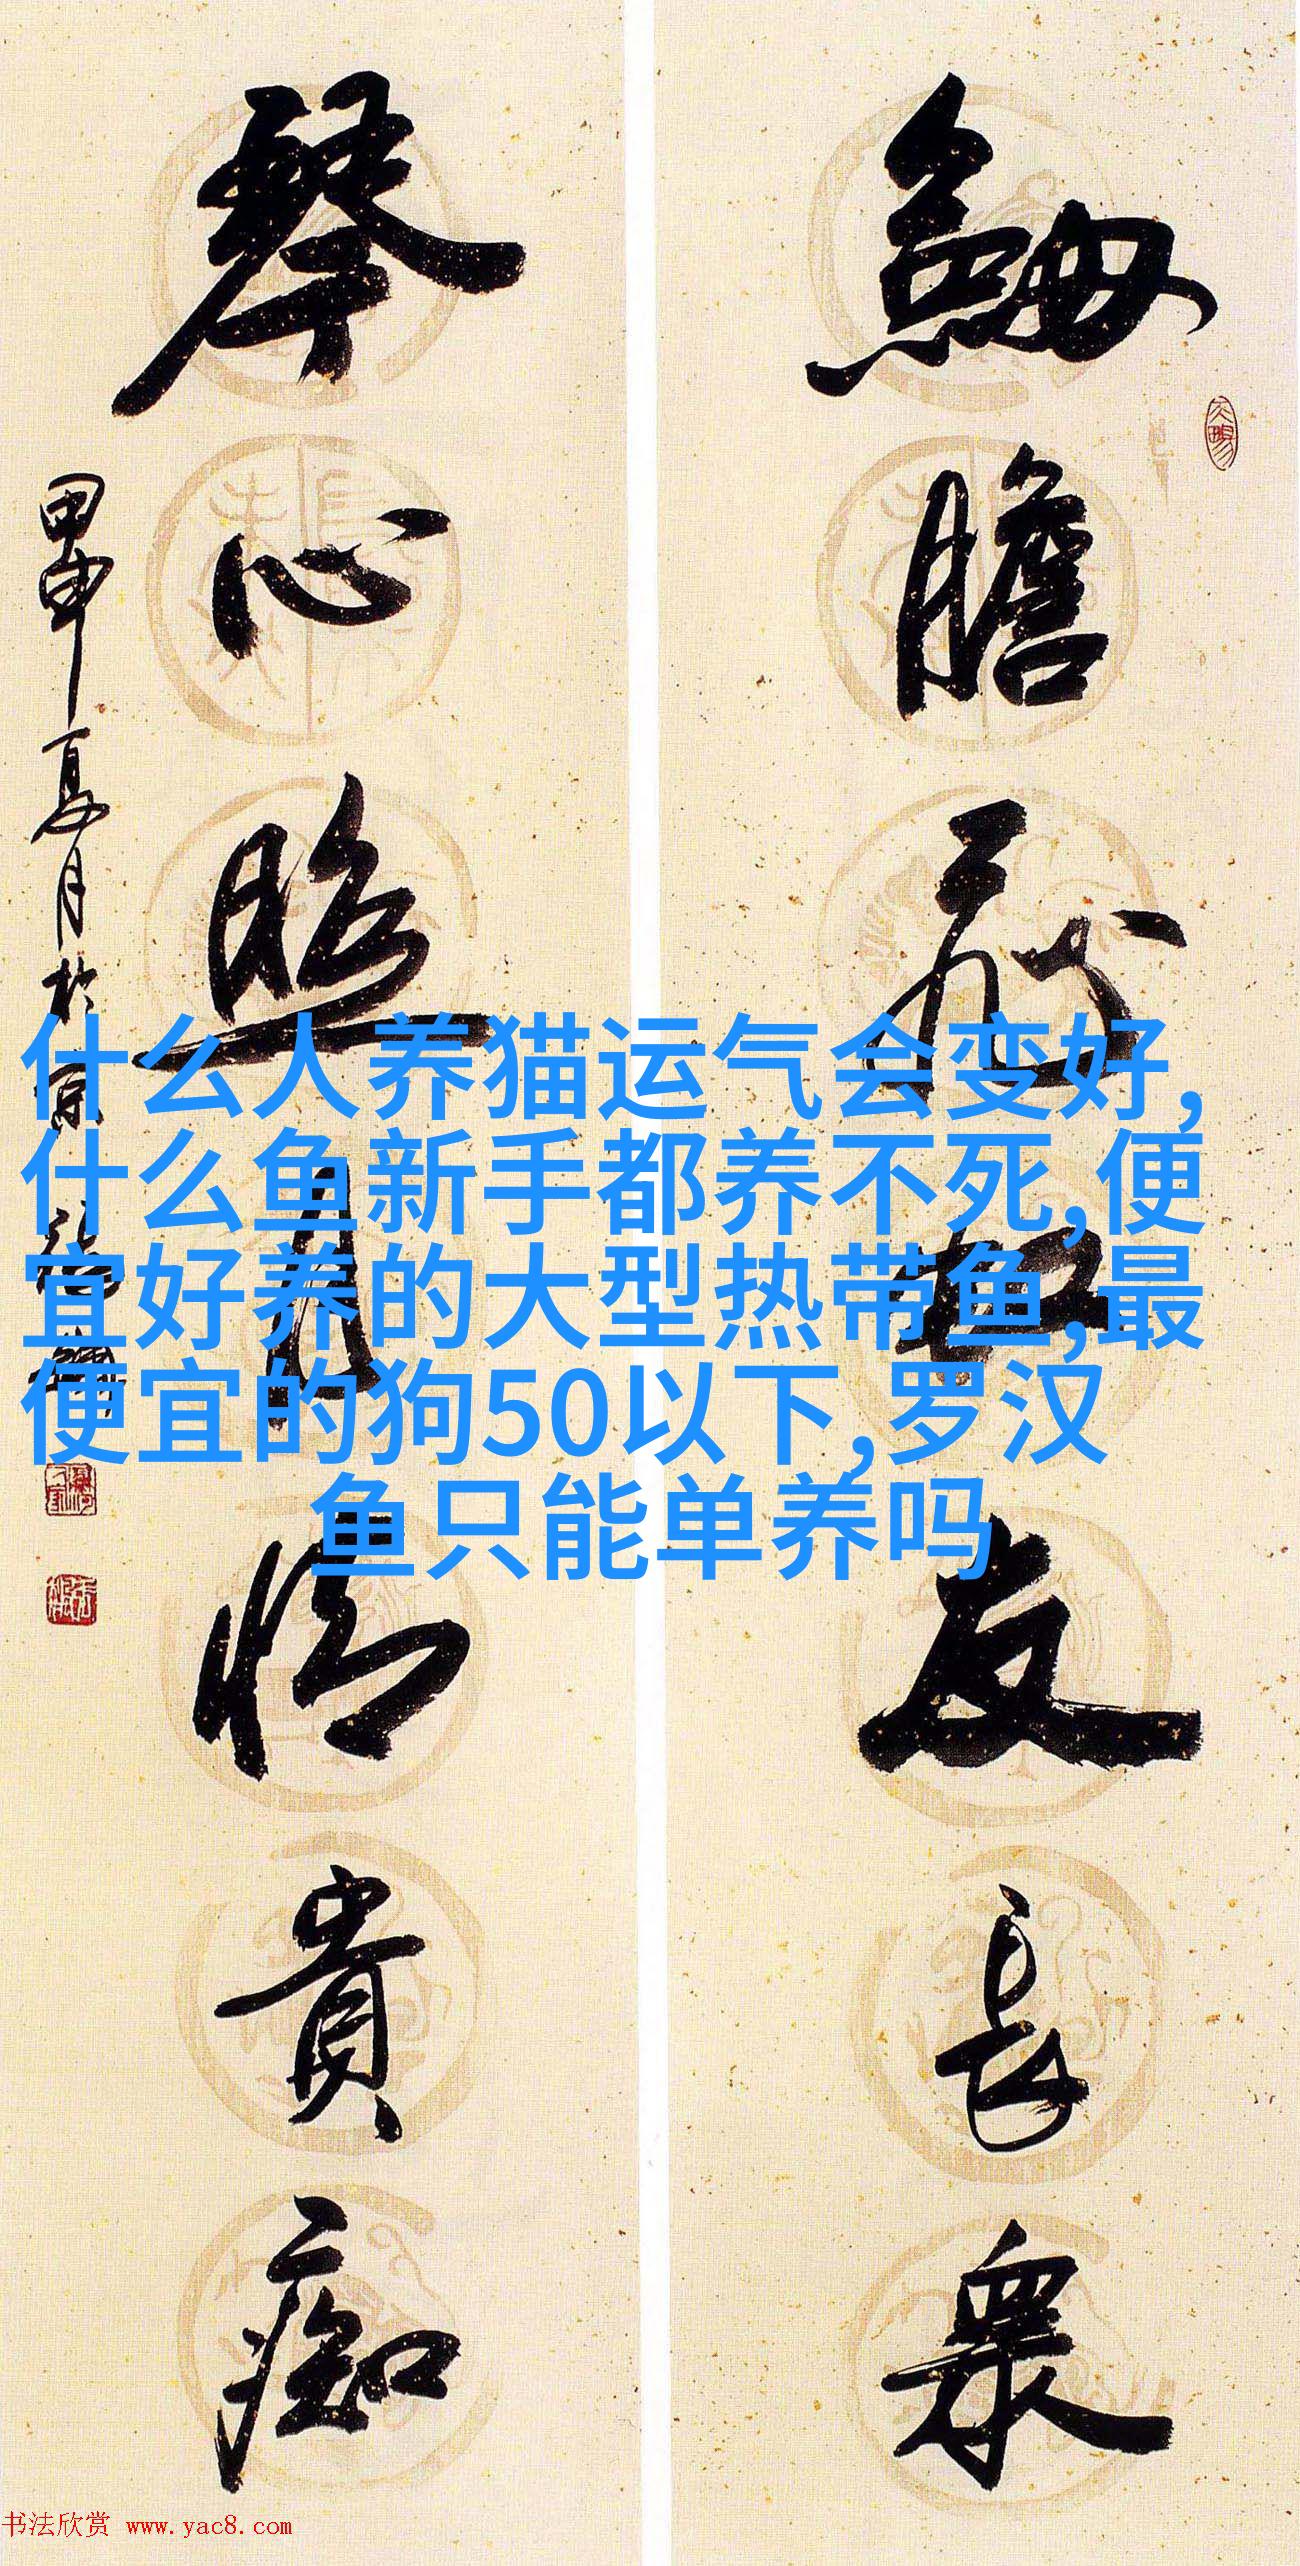 劒膽形如友長衆
琴心照月情貴痴
甲申夏月於京
什么人养猫运气会变好,
什么鱼新手都养不死,便
宜好养的大型热带鱼,最
便宜的狗50以下,罗汉
鱼只能单养吗
书法欣赏 www.yac8.com